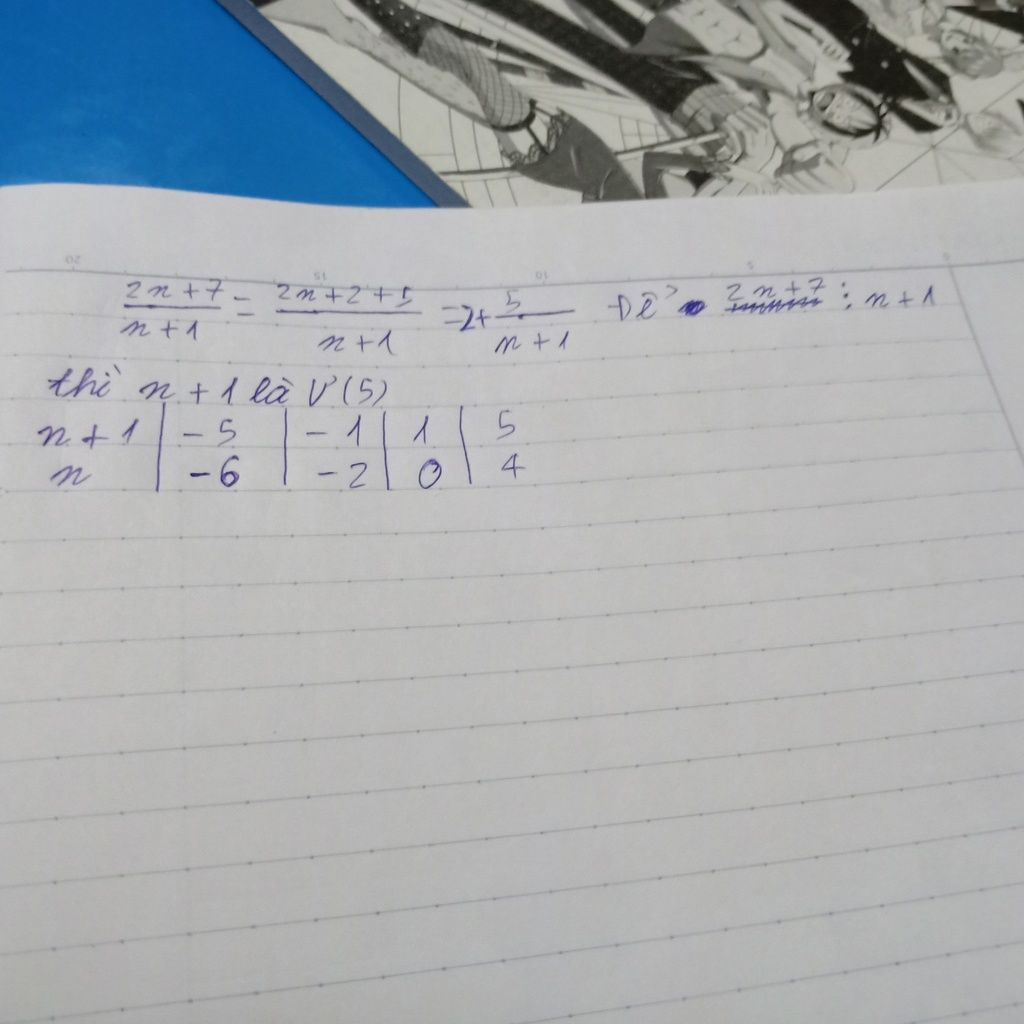 2n+7/n+1 = 2n+2+5/n+1 = 2+ 5/n+1 Để 2n+7 ⋮ n+1
thì n+1 là Ư(5)
n+1 | -5 | -1 | 1 | 5
n | -6 | -2 | 0 | 4